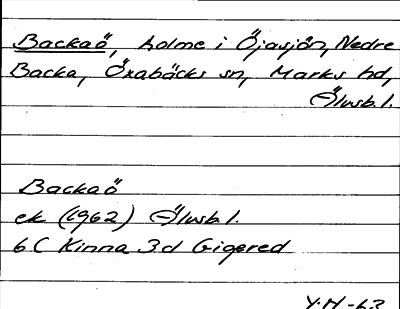 Backaö, holme i Öjasjön, Nedre
Backa, Öxabäcks sn, Marks hd,
Älvsb. l.
Backaö
ek (1962) Älvsb. l.
6 C Kinna 3d Gigered
Y.H -63